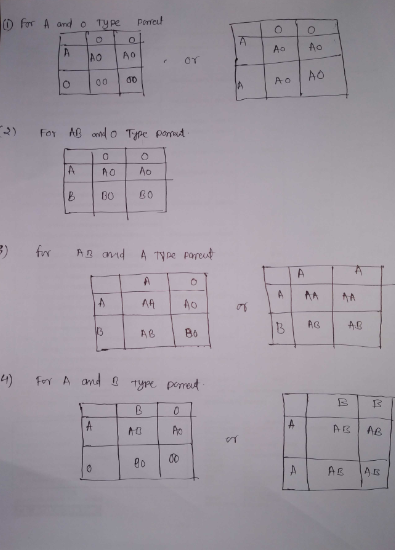 ① For A and O Type Parent
O O
A AO AO
O OO OO
or
O O
A AO AO
A AO AO
2) For AB and O Type parent.
O O
A AO AO
B BO BO
3) for AB and A Type parent
A O
A AA AO
B AB BO
or
A A
A AA AA
B AB AB
4) For A and B Type parent.
B O
A AB AO
O BO OO
or
B B
A AB AB
A AB AB